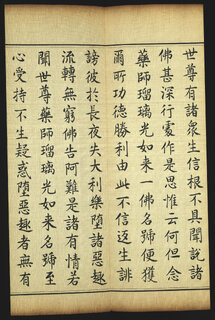 世尊有諸衆生信根不具聞說諸
佛甚深行處作是思惟云何但念
藥師瑠璃光如來一佛名號便獲
爾所功德勝利由此不信返生誹
謗彼於長夜失大利樂墮諸惡趣
流轉無窮佛告阿難是諸有情若
聞世尊藥師瑠璃光如來名號至
心受持不生疑惑墮惡趣者無有